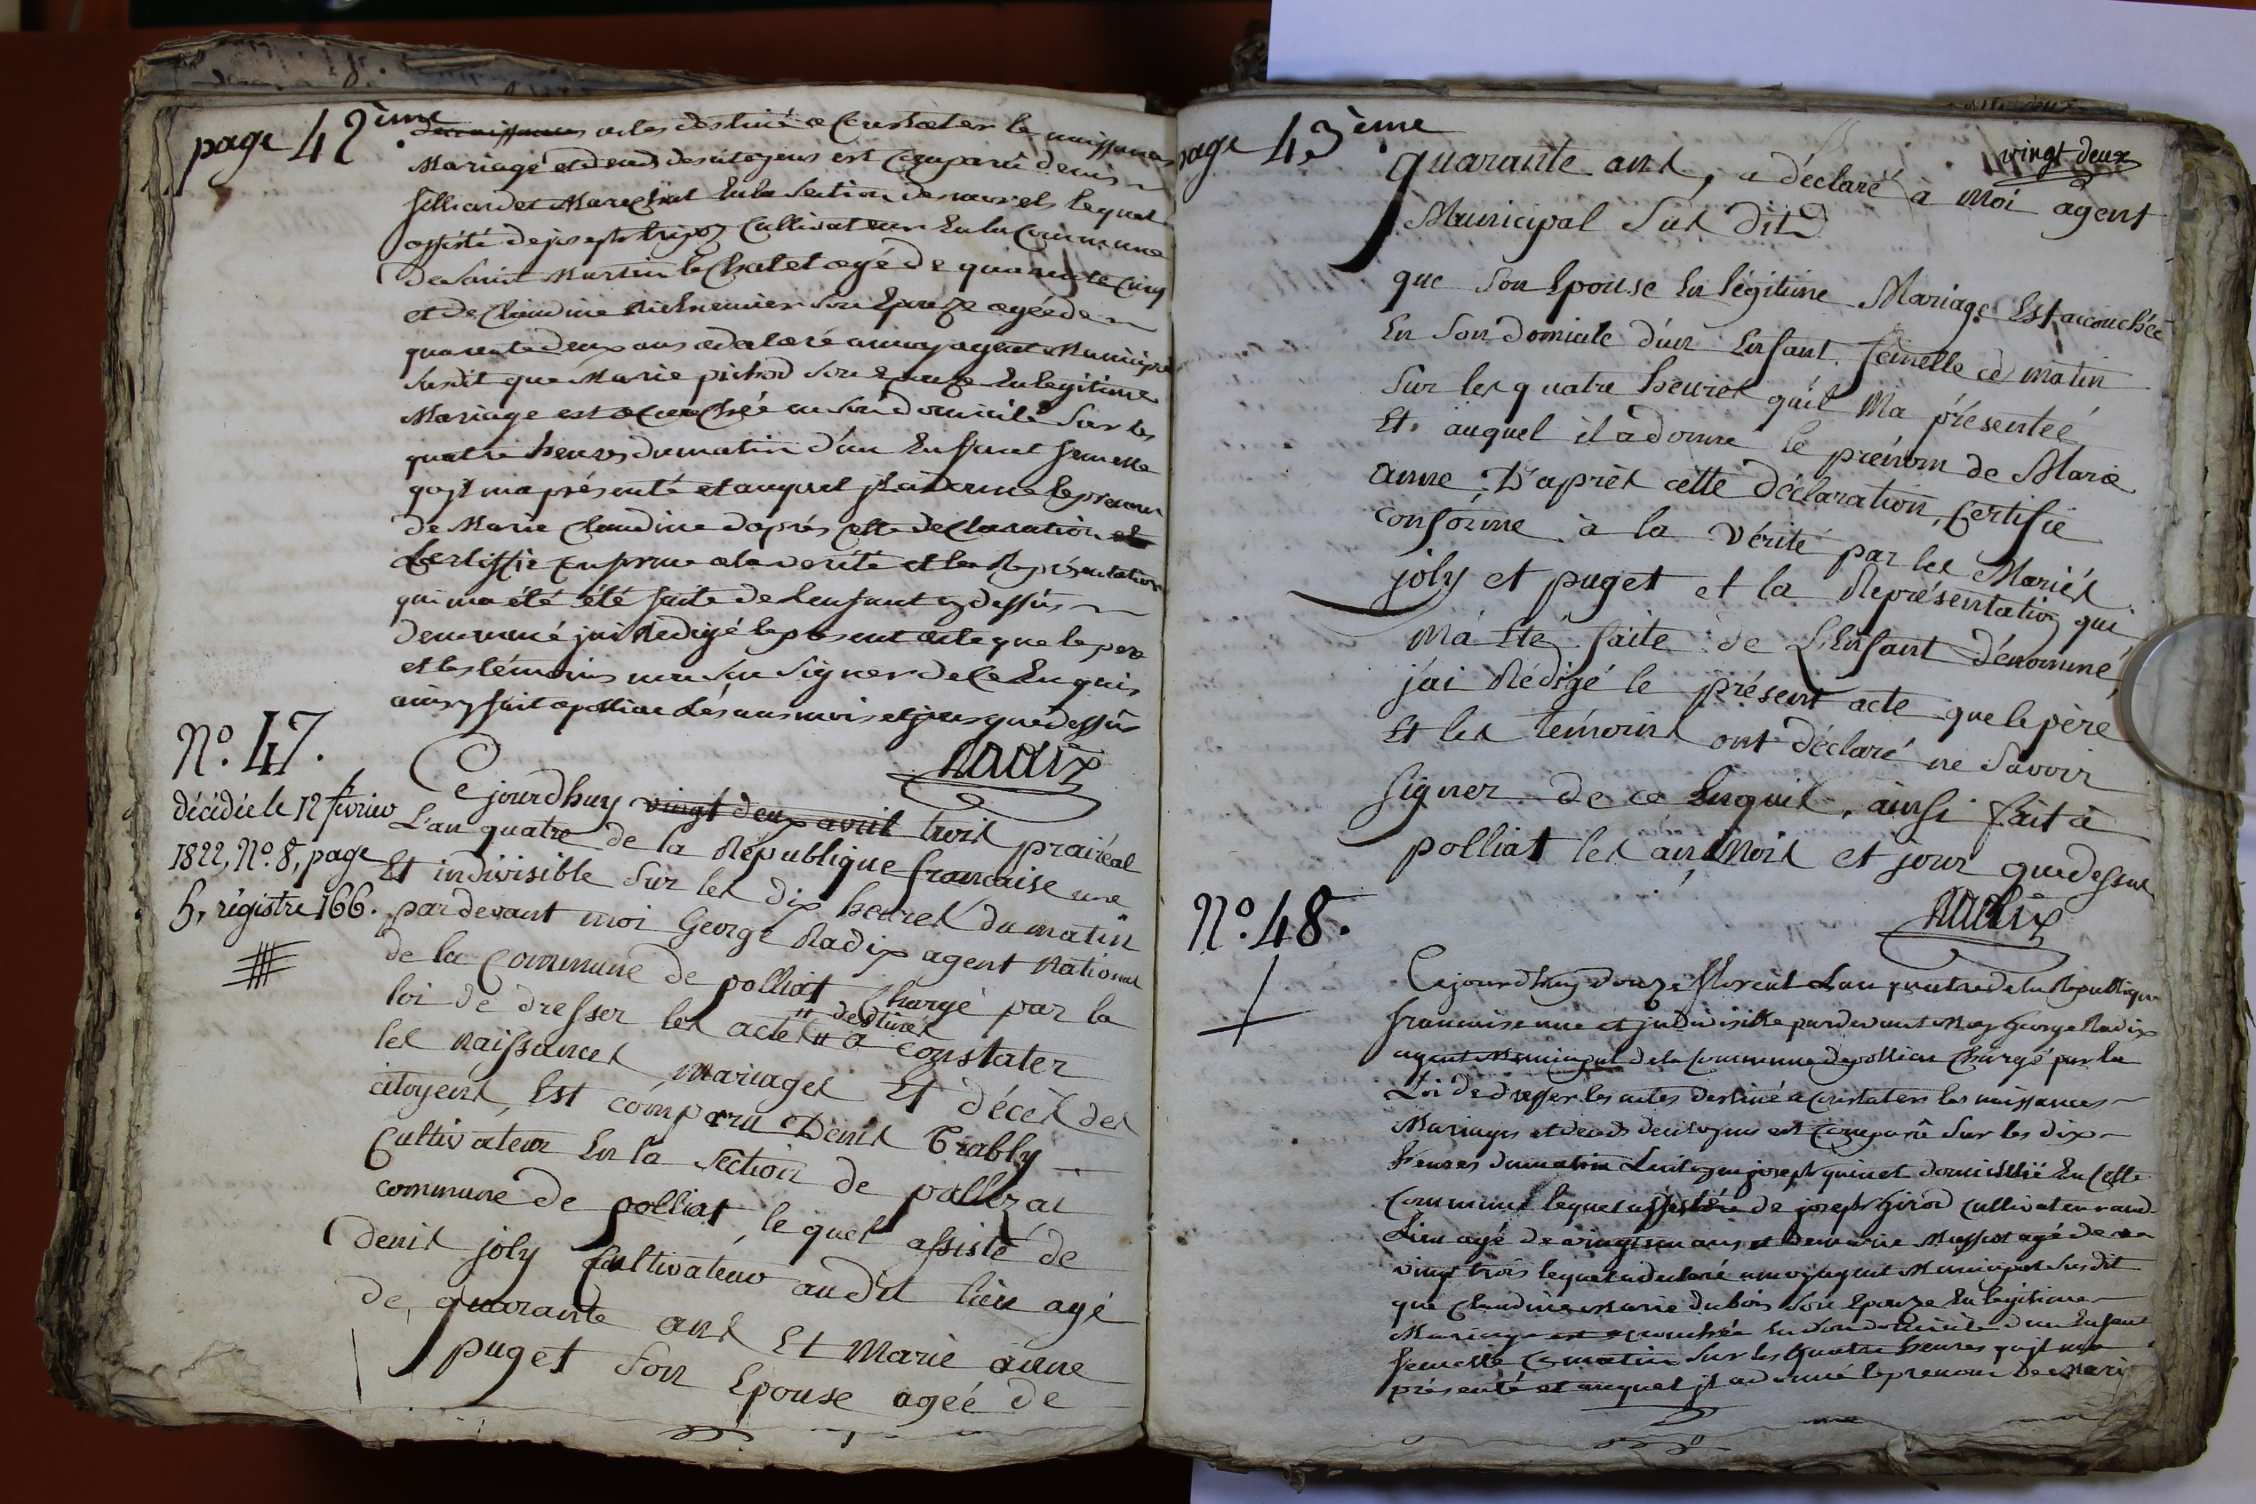 page 42.ème
actes destiné a Constater le naissances
Mariage et deces des citoyens est Comparu denis
filliardet Marechal En la Section des maurels lequel
assisté de joseph Cultivateur En la Commune
de Saint Martin le Chatel agé de quarante Cinq
et de Claudine Michremier Son Epouze agée de
quarante deux ans a déclaré a moy agent Municipal
Susdit que Marie pichod Son epouze En legitime
Mariage est acouchée en Son domicile Sur les
quatre heures du matin d'un Enfant femelle
qu'jl ma présenté et auquel jl a donné le prenom
de Marie Claudine d'aprés cette declaration et
Certiffié Conforme a la verité et la Représentation
qui ma été été faite de l'enfant cy dessus
denommé j'ai Redigé le present acte que le pere
et les témoins n'on Su Signer de ce Enquis
ainsy fait a polliat Les ans mois et jour que dessus
Radix
N.º 47.
décédée le 12 février
1822, N.º 8, page
5, régistre 166.
Ce jourd'huy vingt deux avril troix prairéal
L'an quatre de la République française une
Et indivisible Sur les dix heures du matin
par devant moi George Radix agent National
de la Commune de polliat Chargé par la
loi de dresser les actes destinés à constater
les naissances mariages Et décès des
citoyens, Est comparu Denis Trably
Cultivateur En la Section de pollezai
commune de polliat, lequel assisté de
denis joly Cultivateur audit lieu agé
de quarante ans Et Marie anne
puget Son Epouse agéé de
page 43.ème
vingt deux
quarante ans, a déclaré à Moi agent
Municipal Sus dit
que Son Epouse En légitime Mariage Est accouchéé
En Son domicile d'un Enfant femelle ce matin
Sur les quatre heures qu'il M'a présentéé
Et auquel il a donné le prénom de Marie
anne; D'après cette déclaration, Certifié
conforme à la vérité par les Mariés
joly et puget et la Représentation qui
M'a Eté faite de L'Enfant dénommé,
j'ai Rédigé le présent acte que le père
Et les témoins ont déclaré ne Savoir
Signer de ce Enquis. ainsi fait à
polliat les an, Mois et jour que dessus
Radix
N.º 48.
Cejourd'huy douze floreal L'an quatre de la Republique
francaise une et jndivisible pardevant Moy George Radix
agent Municipal de la Commune de polliat Chargé par la
Loi de dresser les actes destiné a Constater les naissances
Mariages et deces des citoyens est Comparu Sur les dix
heures du matin Le citoyen joseph quinet domicillié En Cette
Commune lequel assisté de joseph girod Cultivateur aud.
Lieu agé de vingt un ans et de marie Mussot agé de
vingt trois lequel a declaré a moy agent Municipal Susdit
que Claudine Marie Dubois Son Epouze En legitime
Mariage est acouchée En Son domicile d'un Enfant
femelle Ce matin Sur les Quatre heures qu'jl m'a
présenté et auquel jl a donné le prenom de Mari